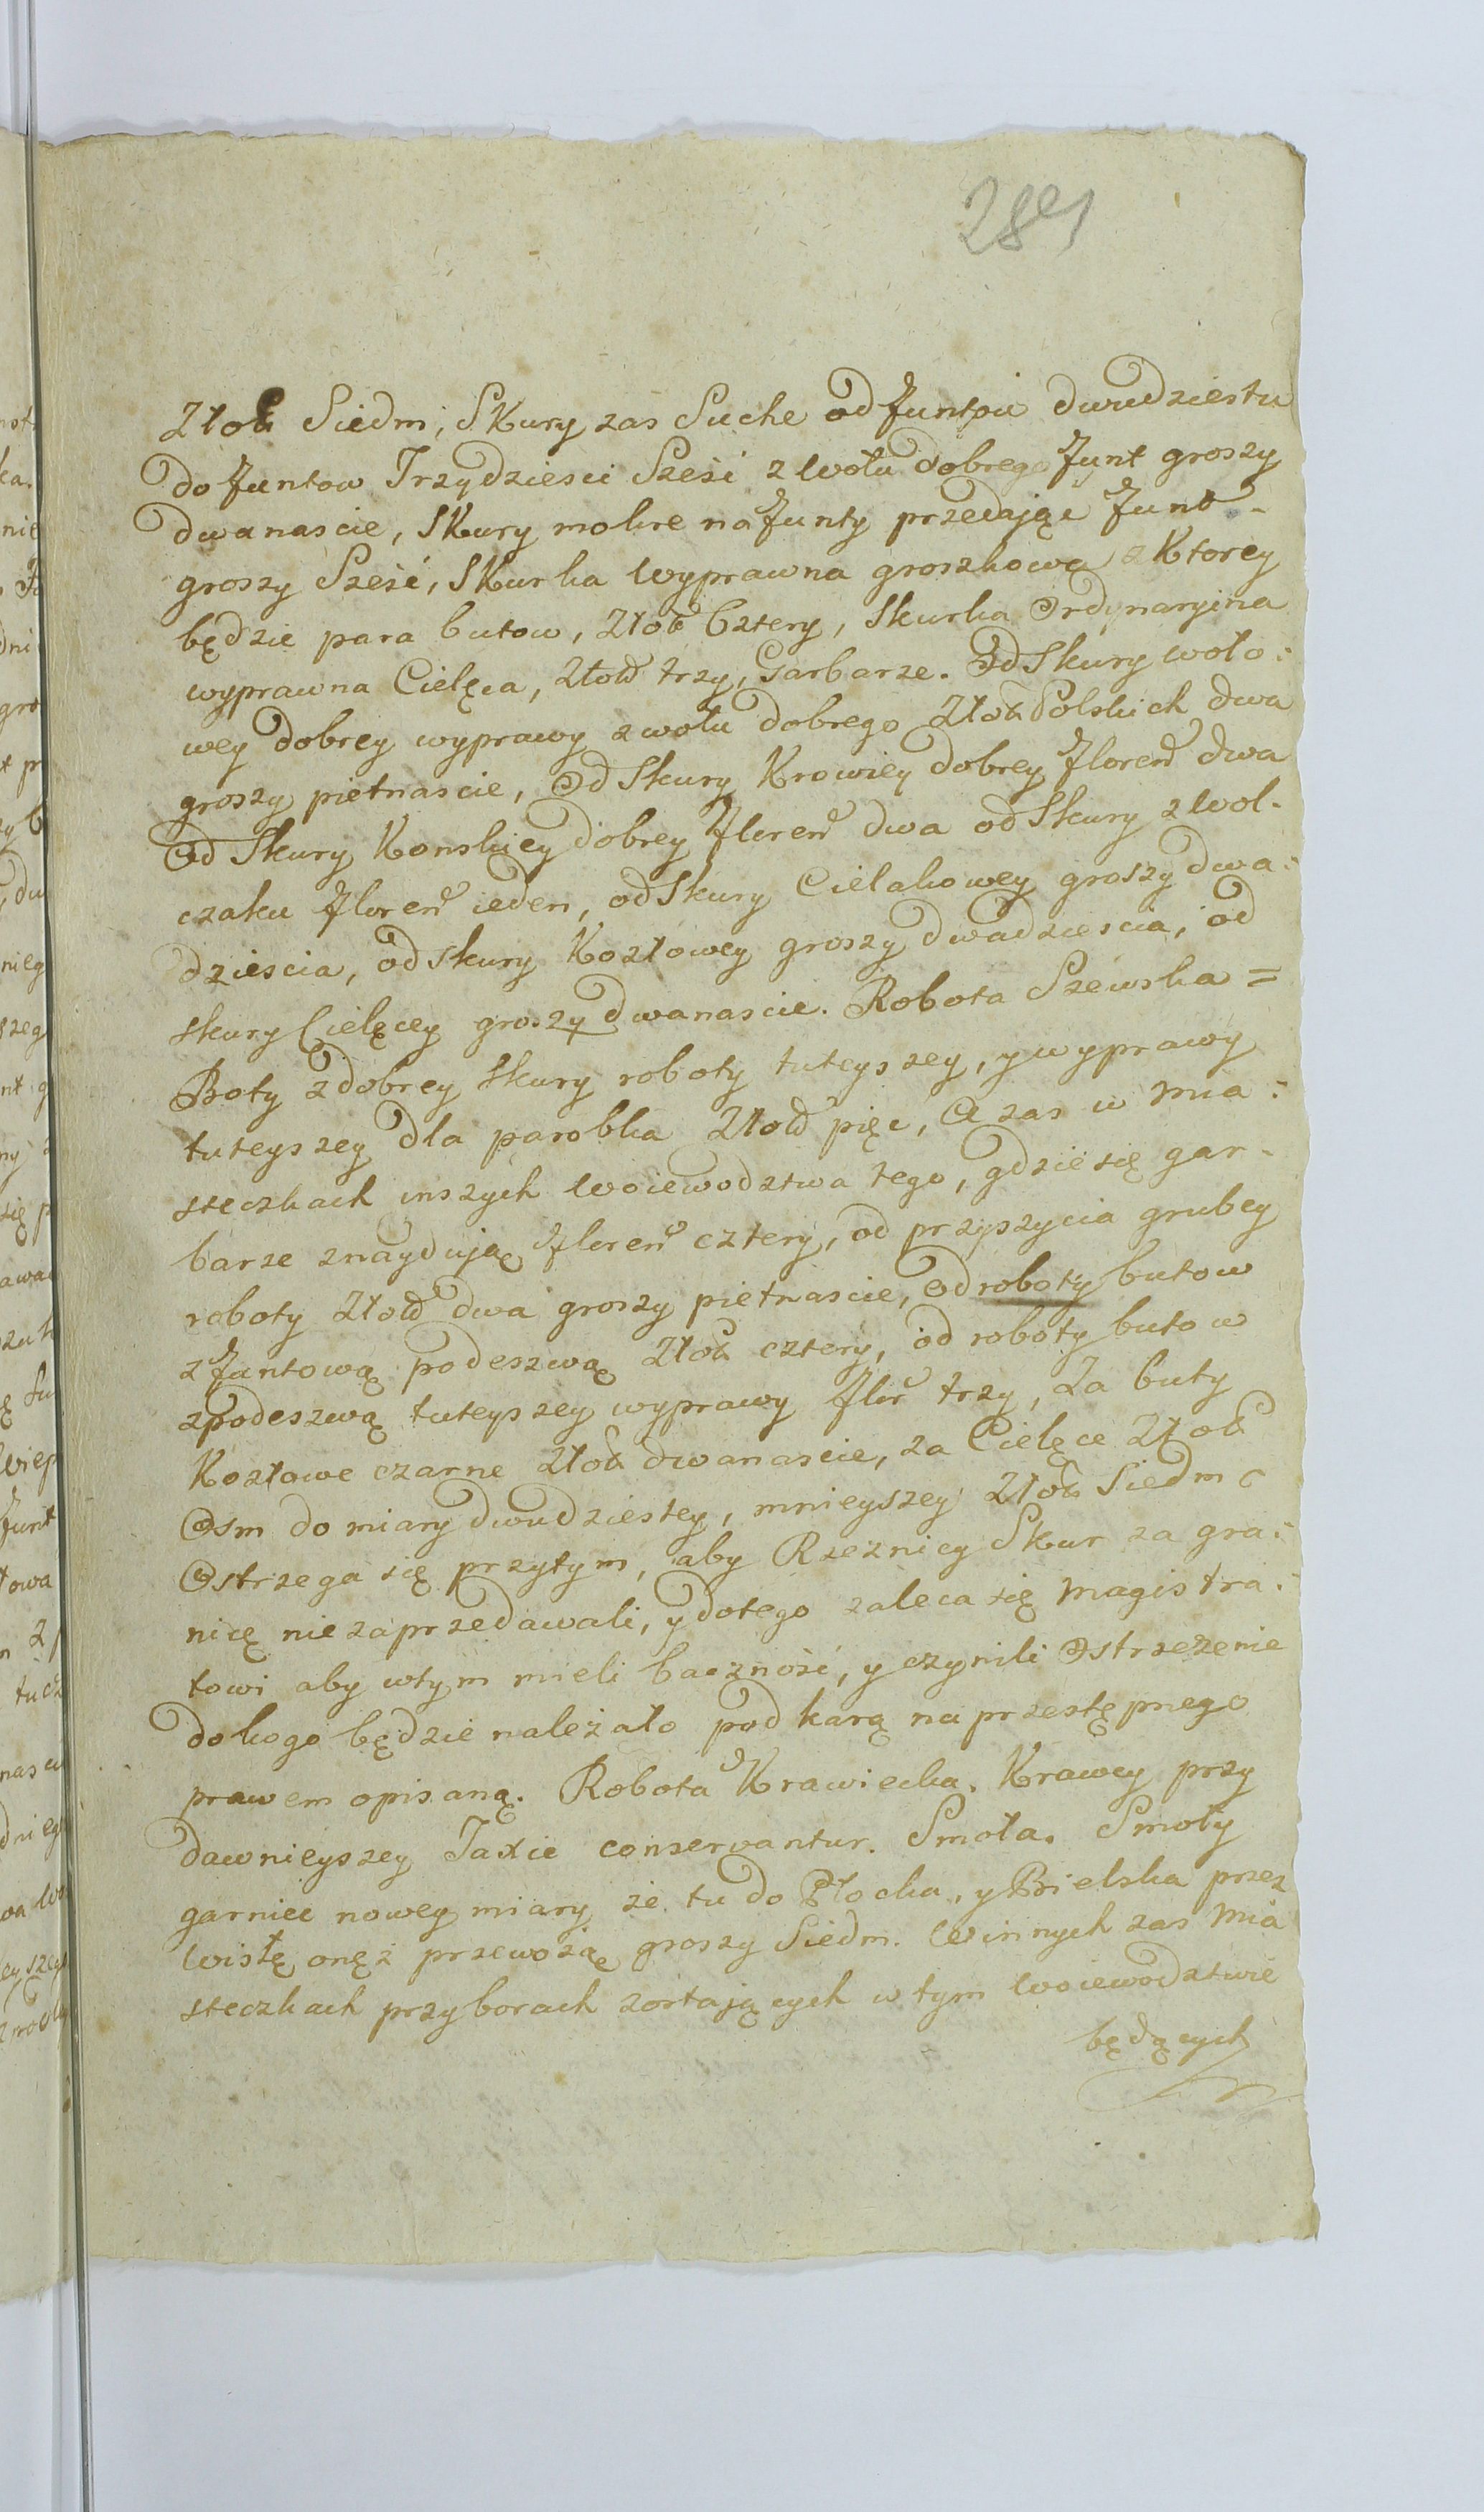 289
Złot Siedm, Skury zas Suche od funtow dwudziestu
do funtow Trzydziesci Sześć z Wołu dobrego funt groszy
dwanascie, Skury mokre na funty przedając funt-
groszy Sześć, Skurka Wyprawna groszkowa z Ktorey
będzie para butow, Złot Cztery, Skurka Ordynaryina
wyprawna Cielęca, Złot trzy, Garbarze. Od Skury woło:
wey dobrey wyprawy z wołu dobrego Złot Polskich dwa
groszy pietnascie, Od Skury Krowiey dobrey floren dwa
Od Skury Konskiey dobrey floren dwa od Skury z Wol-
czaku floren ieden, od Skury Cielakowey groszy dwa:
dziescia, od skury Kozłowey groszy dwadziescia, od
skury Cielęcey groszy dwanascie. Robota Szewska =
Boty z dobrey skury roboty tuteyszey, y wyprawy
tuteyszey dla parobka Złot pięc, A zas w Mia:
steczkach inszych Woiewodztwa tego, gdzie się gar-
barze znayduią floren cztery, od przyszycia grubey
roboty Złot dwa groszy pietnascie, od roboty butow
z funtową podeszwą Złot cztery, od roboty butow
z podeszwą tuteyszey wyprawy flor trzy, Za buty
Kozłowe czarne Złot dwanascie, za Cielęce Złot
Osm do miary dwudziestey, mnieyszey Złot Siedm
Ostrzega się przytym, aby Rzeznicy Skur za gra:
nicę nie zaprzedawali, y do tego zaleca się Magistra:
towi aby w tym mieli baczność, y czynili Ostrzezenie
do kogo będzie należało pod karą na przestępnego
prawem opisaną. Robota Krawiecka. Krawcy przy
dawnieyszey Taxie conservantur. Smoła. Smoły
garniec nowey miary że tu do Płocka, y Bielska przez
Wisłę onęż przewożą groszy Siedm. W innych zas Mia
steczkach przy borach zostających w tym Woiewodztwie
będących